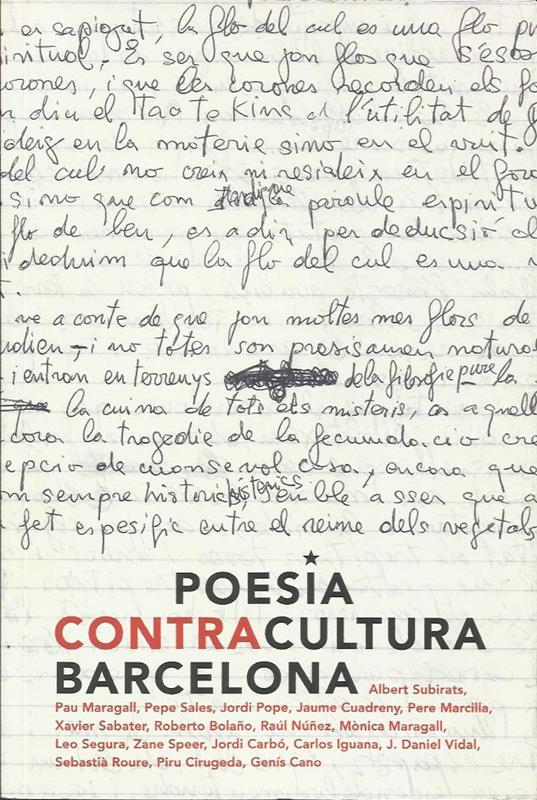 er sapigut, la flo del cul es una flo pu
iritual. Es ser que jon flos que s'esto
orones, i que les corones recorden els
n diu el Hao te King a l'utilitat de
deig en la moterie simo en el vuit.
del cul no creix ni resideix en el foro
si no que com la paroule espiritu
flo de ben, es a dir, per deducsió el
i dedhuim que la flo del cul es una
ve a conte de que jon moltes mes flors de
ndien i no totes son presisamen natural
i entran en terrenys de la filosofie pure la
la cuina de tots els misteris, es aquell
cora la tragedie de la fecundacio cre
epcio de cuansevol cosa, encora que
m sempre historic histerics, semble asser que a
fet espesific entre el reime dels vegetals
POESIA
CONTRACULTURA
BARCELONA
Albert Subirats,
Pau Maragall, Pepe Sales, Jordi Pope, Jaume Cuadreny, Pere Marcilla,
Xavier Sabater, Roberto Bolaño, Raúl Núñez, Mònica Maragall,
Leo Segura, Zane Speer, Jordi Carbó, Carlos Iguana, J. Daniel Vidal,
Sebastià Roure, Piru Cirugeda, Genís Cano